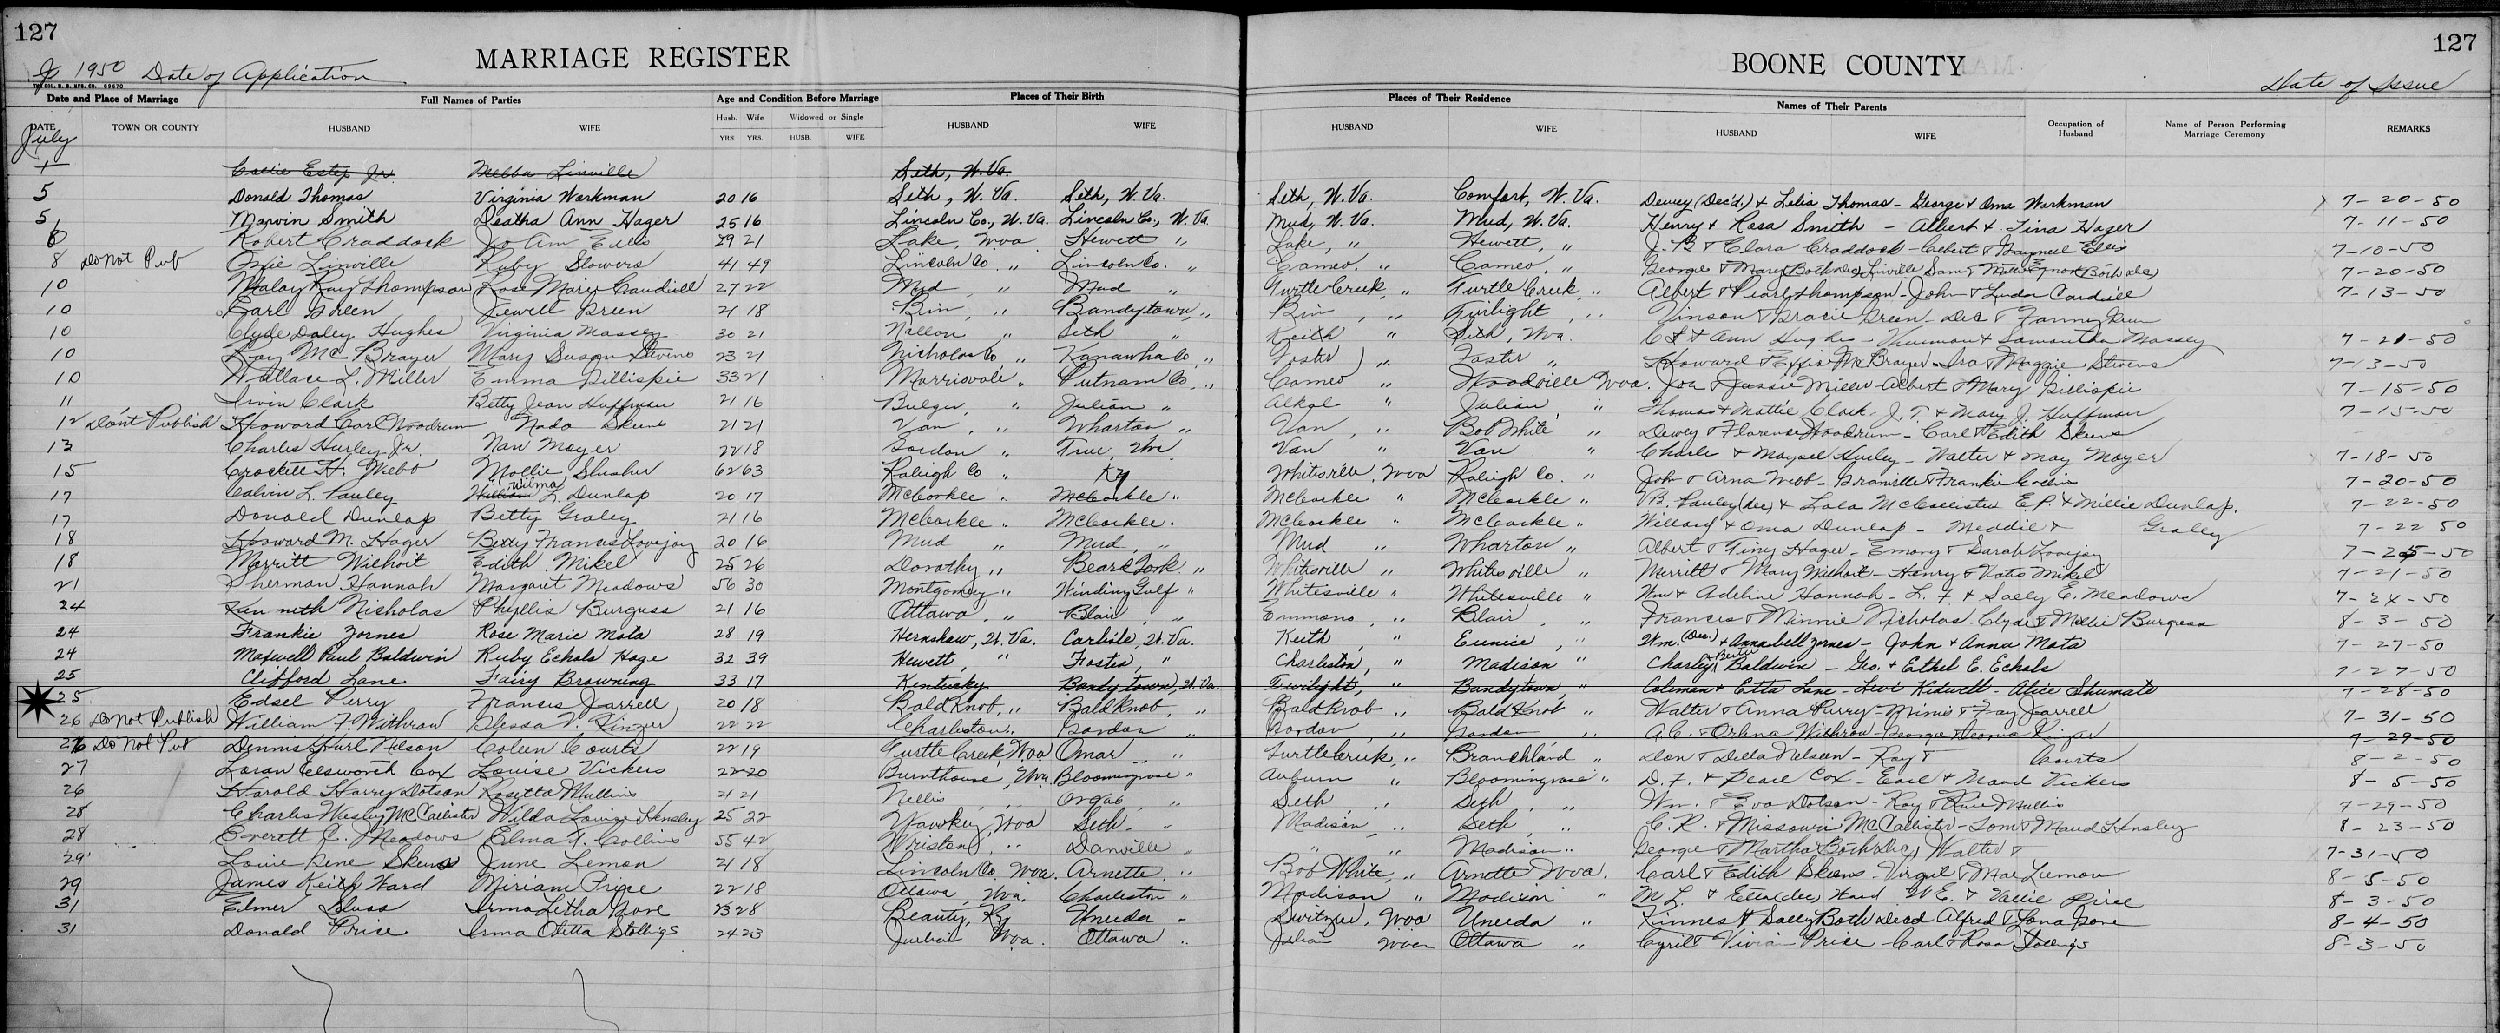 127
127
MARRIAGE REGISTER
BOONE COUNTY
1950 Date of Application
Date of Issue
Date and Place of Marriage Full Names of Parties Age and Condition Before Marriage Places of Their Birth Places of Their Residence Names of Their Parents
DATE TOWN OR COUNTY HUSBAND WIFE Husb. Wife Widowed or Single HUSBAND WIFE HUSBAND WIFE HUSBAND WIFE Occupation of Husband Name of Person Performing Marriage Ceremony REMARKS
YRS YRS. HUSB. WIFE
July
1 Estep Jr. Melba Linville Seth, W. Va.
5 Donald Thomas Virginia Workman 20 16 Seth, W. Va. Seth, W. Va. Seth, W. Va. Comfort, W. Va. Dewey (Dec'd.) & Lelia Thomas - George & Oma Workman 7-20-50
5 Marvin Smith Deatha Ann Hager 25 16 Lincoln Co., W. Va. Lincoln Co., W. Va. Mud, W. Va. Mud, W. Va. Henry & Rosa Smith - Albert & Tina Hager 7-11-50
6 Robert Craddock Jo Ann Ellis 29 21 Lake, Wva Hewett " Lake, " Hewett, " J. B & Clara Craddock - Ellis 7-10-50
8 Do Not Pub Linville Ruby Stowers 41 49 Lincoln Co. " Lincoln Co. " Cameo, " Cameo, " George & Mary (Both Dec) Linville 7-20-50
10 Ray Thompson Rose Mary Caudill 27 22 Mud " Mud " Turtle Creek, " Turtle Creek, " Albert & Pearl Thompson - John & Caudill 7-13-50
10 Earl Green Jewell Green 21 18 Bim, " Bandytown, " Bim, " Twilight, " Vinson & Gracie Green - Dec & Fanny Green
10 Clyde Daley Hughes Virginia Massey 30 21 Nellow " Seth " Keith " Seth, Wva. & Ann Hughes - Thurman & Samantha Massey 7-21-50
10 Ray Mc Brayer Mary Susan Stevens 23 21 Nicholas Co " Kanawha Co, " Foster " Foster " Howard & Effie McBrayer - Ira & Maggie Stevens 7-13-50
10 Wallace L. Miller Emma Gillispie 33 21 Morrisvale " Putnam Co, " Cameo " Woodville Wva. Joe & Jessie Miller - Albert & Mary Gillispie 7-15-50
11 Irvin Clark Betty Jean Huffman 21 16 Bulger, " Julian " Alkol " Julian, " Thomas & Mattie Clark - J. T. & Mary J. Huffman 7-15-50
12 Don't Publish Howard Carl Woodrum Nada Skeens 21 21 Van, " Wharton " Van, " Bob White " Dewey & Florence Woodrum - Carl & Edith Skeens
13 Charles Hurley Jr. Nan Moyer 22 18 Gordon " Van " Van " Charlie & Maysel Hurley - Walter & May Moyer 7-18-50
15 Crockett H. Webb Mollie Slusher 62 63 Raleigh Co " Ky Whitesville, Wva Raleigh Co. " John & Arna Webb - Granville & Frankie 7-20-50
17 Calvin L. Pauley Wilma L. Dunlap 20 17 McCorkle " McCorkle " McCorkle " McCorkle " V.B. Pauley (dec) & Lola McCallister E.P. & Millie Dunlap. 7-22-50
17 Donald Dunlap Betty Graley 21 16 McCorkle " McCorkle. McCorkle " McCorkle " Willard & Oma Dunlap - Meddie & Graley 7-22 50
18 Howard M. Hager Betty Francis Lovejoy 20 16 Mud " Mud, " Mud " Wharton " Albert & Tiny Hager - Emory & Sarah Lovejoy 7-25-50
18 Merritt Wilhoit Edith Mikel 25 26 Dorothy " Beards Fork, " Whitesville " Whitesville " Merritt & Mary Wilhoit - Henry & Katie Mikel 7-21-50
21 Sherman Hannah Margaret Meadows 50 30 Montgomery " Winding Gulf " Whitesville " Whitesville " Wm & Adeline Hannah - L. F. & Sally E. Meadows 7-24-50
24 Kenneth Nicholas Phyllis Burgess 21 16 Ottawa, " Blair " Emmons, " Blair, " Francis & Minnie Nicholas Clyde & Mollie Burgess 8-3-50
24 Frankie Zornes Rose Marie Mota 28 19 Hernshaw, W. Va. Carlisle, W. Va. Keith, " Eunice, " Wm. (Dec.) & Annabell Zornes - John & Anna Mota 7-27-50
24 Maxwell Paul Baldwin Ruby Echols Hage 32 39 Hewett, " Foster, " Charleston, " Madison " Charley & Bertie Baldwin - Geo. & Ethel E. Echols 7-27-50
25 Clifford Lane Fairy Browning 33 17 Kentucky Bandytown, W. Va. Twilight, " Bandytown, " Coleman & Etta Lane - Levi Kidwell - Alice Shumate 7-28-50
25 Edsel Perry Francis Jarrell 20 18 Bald Knob, " Bald Knob, " Bald Knob " Bald Knob " Walter & Anna Perry - Minis & Fay Jarrell 7-31-50
26 Do Not Publish William F. Withrow V. Kinzer 22 22 Charleston, Gordon " Gordon, " Gordon " A.C. & Orlena Withrow - George & Kinzer 7-29-50
26 Do Not Pub Dennis Nelson Coleen Courts 22 19 Turtle Creek, Wva Omar " Turtle Creek, " Branchland " Don & Della Nelson - Ray & Courts 8-2-50
27 Loran Elsworth Cox Louise Vickers 22 20 Burnthouse, Wva. Bloomingrose " Auburn " Bloomingrose " D. F. & Pearl Cox - Earl & Maud Vickers 8-5-50
26 Harold Harry Dotson Rosetta Mullins 21 21 Nellis Orgas " Seth " Seth " Wm. & Eva Dotson - Roy & Mullins 7-29-50
28 Charles Wesley McCallister Wilda Louise Hensley 25 22 Yawkey, Wva Seth " Madison " Seth, " C. R. & Missouri McCallister - Tom & Maud Hensley 8-23-50
28 Everett C. Meadows Elma F. Collins 55 42 Wriston, " Danville " " " Madison " George & Martha (Both Dec) Walter & 7-31-50
29 Louie Gene Skeens June Lemon 21 18 Lincoln Co, Wva. Arnette, " Bob White, " Arnette Wva. Carl & Edith Skeens - Virgil & Mae Lemon 8-5-50
29 James Keith Ward Miriam Price 22 18 Ottawa, Wva. Charleston " Madison " Madison " M L. & Etta (dec) Ward W E. & Vallie Price 8-3-50
31 Elmer Irma Letha Gore 23 28 Beauty, Ky Uneeda " Switzer, Wva Uneeda " & Sally Both Dead Alfred & Lona Gore 8-4-50
31 Donald Price Irma Oletta Stollings 24 23 Julian Wva. Ottawa " Julian Wva Ottawa " Cyril & Vivian Price - Carl & Rosa Stollings 8-3-50